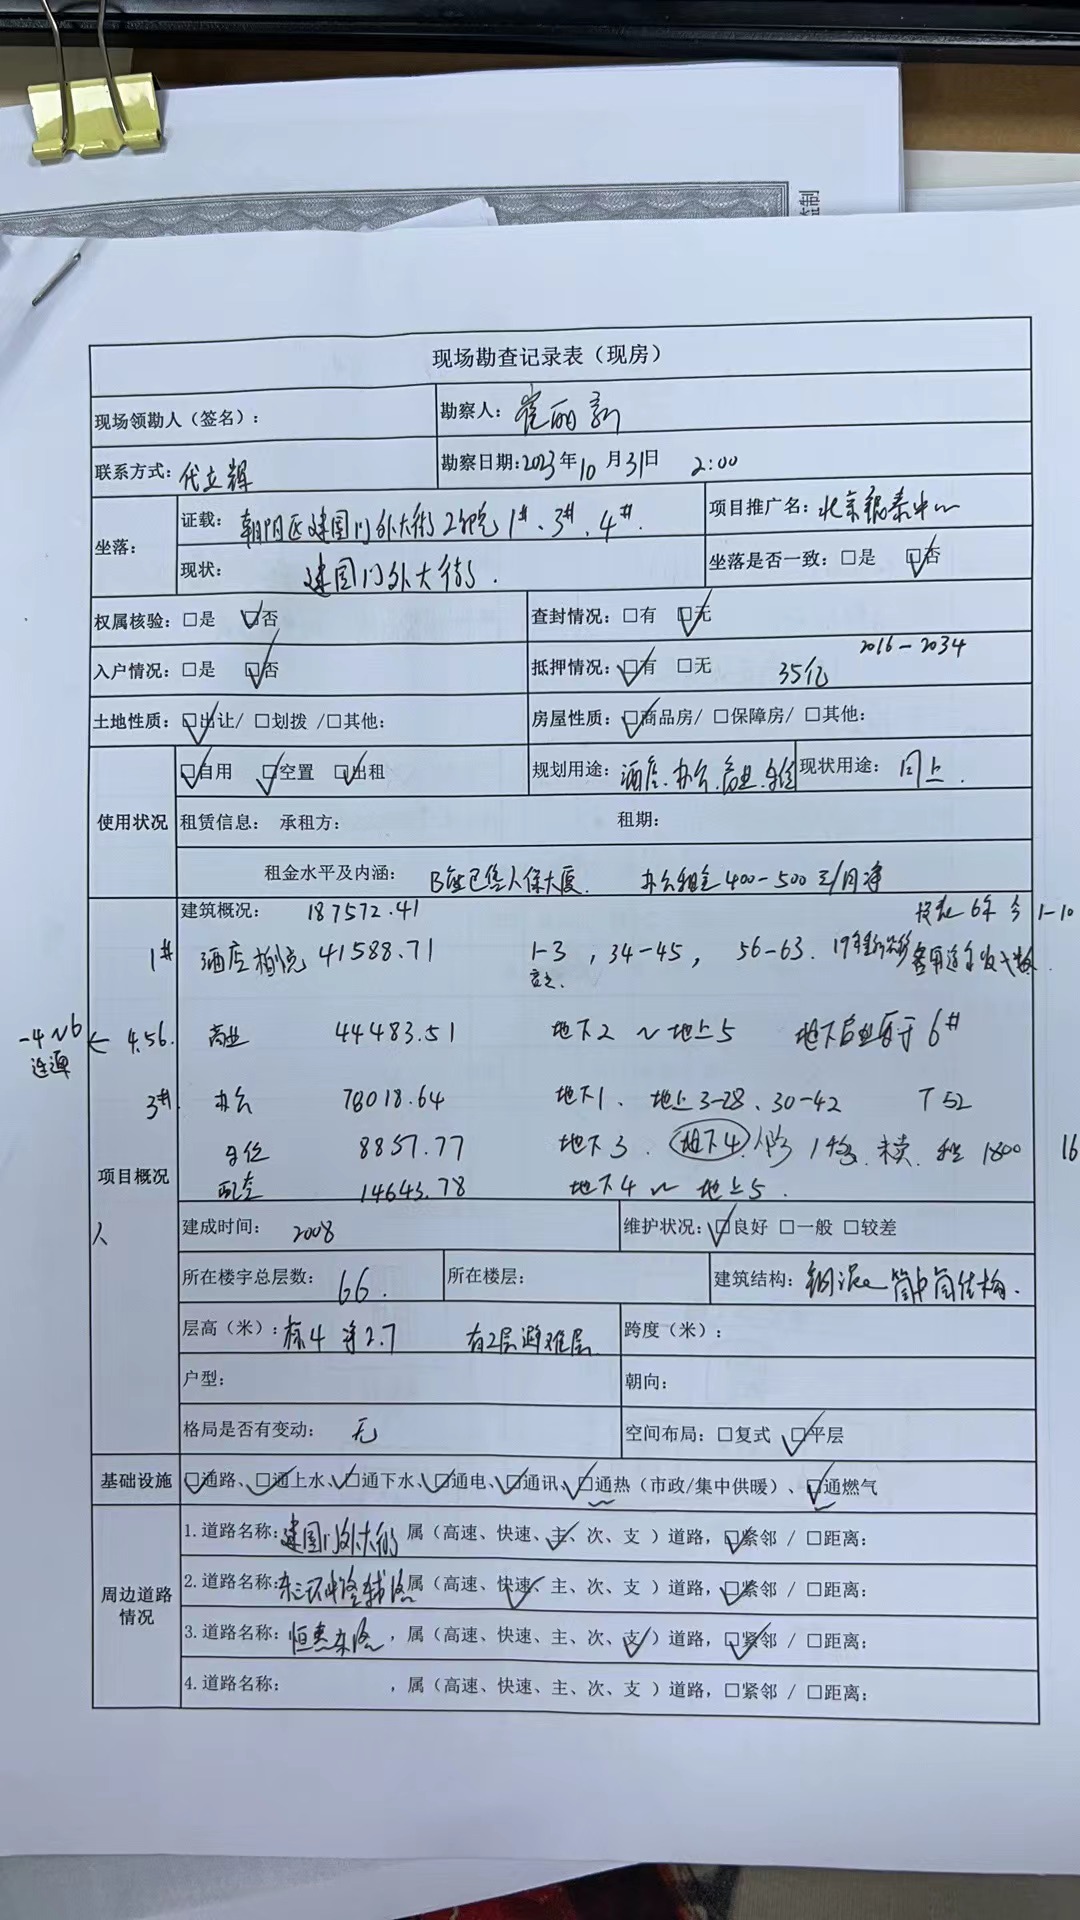 现场勘查记录表（现房）
现场领勘人（签名）： 勘察人：崔丽新
联系方式：代立辉 勘察日期：2023年10月31日 2:00
坐落： 证载：朝阳区建国门外大街2号院1#、3#、4#. 项目推广名：北京银泰中心
现状：建国门外大街. 坐落是否一致：□是 □否
权属核验：□是 □否 查封情况：□有 □无
入户情况：□是 □否 抵押情况：□有 □无 35亿 2016-2034
土地性质：□出让/ □划拨 /□其他： 房屋性质：□商品房/ □保障房/ □其他：
使用状况 □自用 □空置 □出租 规划用途：酒店.办公.商业.车位 现状用途：同上.
租赁信息： 承租方： 租期：
租金水平及内涵： B座已售人保大厦. 办公租金400-500元/月净
项目概况 建筑概况： 187572.41 6年 1-10
1# 酒店柏悦 41588.71 1-3, 34-45, 56-63.
-4~6连通 ← 4.5.6. 商业 44483.51 地下2 ~ 地上5 地下商业属于6#
3#. 办公 78018.64 地下1、地上3-28、30-42 T52
车位 8857.77 地下3. 地下4 人防 未卖. 租 1800 16
配套 14643.78 地下4 ~ 地上5.
建成时间： 2008 维护状况：□良好 □一般 □较差
所在楼宇总层数： 66. 所在楼层： 建筑结构：钢混 筒中筒结构.
层高（米）：标4 净2.7 有2层避难层. 跨度（米）：
户型： 朝向：
格局是否有变动： 无 空间布局：□复式 □平层
基础设施 □通路、□通上水、□通下水、□通电、□通讯、□通热（市政/集中供暖）、□通燃气
周边道路情况 1.道路名称：建国门外大街 属（高速、快速、主、次、支 ）道路，□紧邻 / □距离：
2.道路名称：东三环中路辅路 属（高速、快速、主、次、支 ）道路，□紧邻 / □距离：
3.道路名称：恒惠东路，属（高速、快速、主、次、支 ）道路，□紧邻 / □距离：
4.道路名称： ，属（高速、快速、主、次、支 ）道路，□紧邻 / □距离：